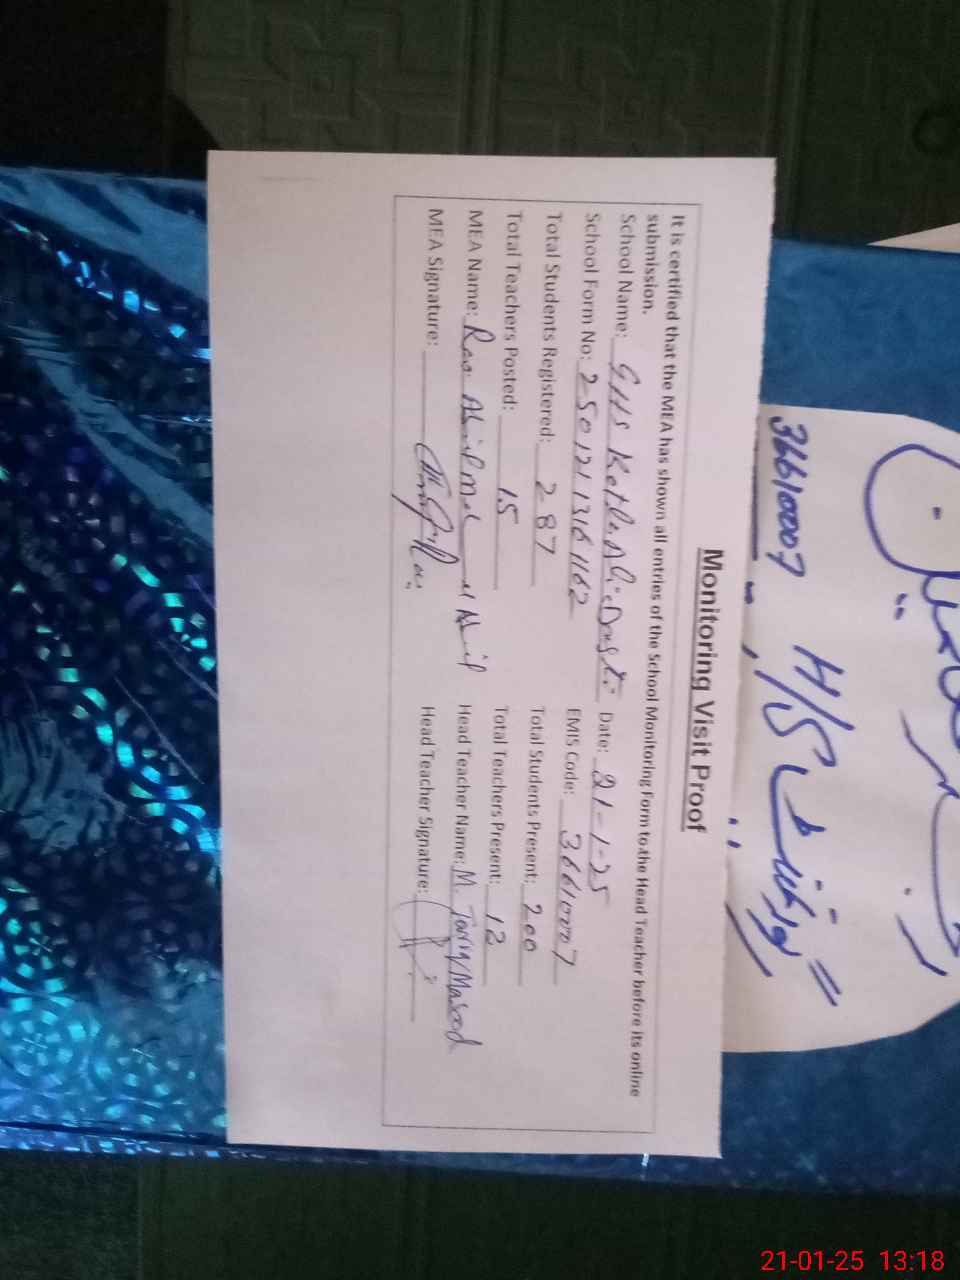 Monitoring Visit Proof
It is certified that the MEA has shown all entries of the School Monitoring Form to the Head Teacher before its online
submission.
School Name: GHS Kotla Ali Dasti Date: 21-1-25
School Form No: 25012113161162 EMIS Code: 36610007
Total Students Registered: 287 Total Students Present: 200
Total Teachers Posted: 15 Total Teachers Present: 12
MEA Name: Rao Head Teacher Name: M. Tariq Masood
MEA Signature: Head Teacher Signature:
36610007 H/S
21-01-25 13:18